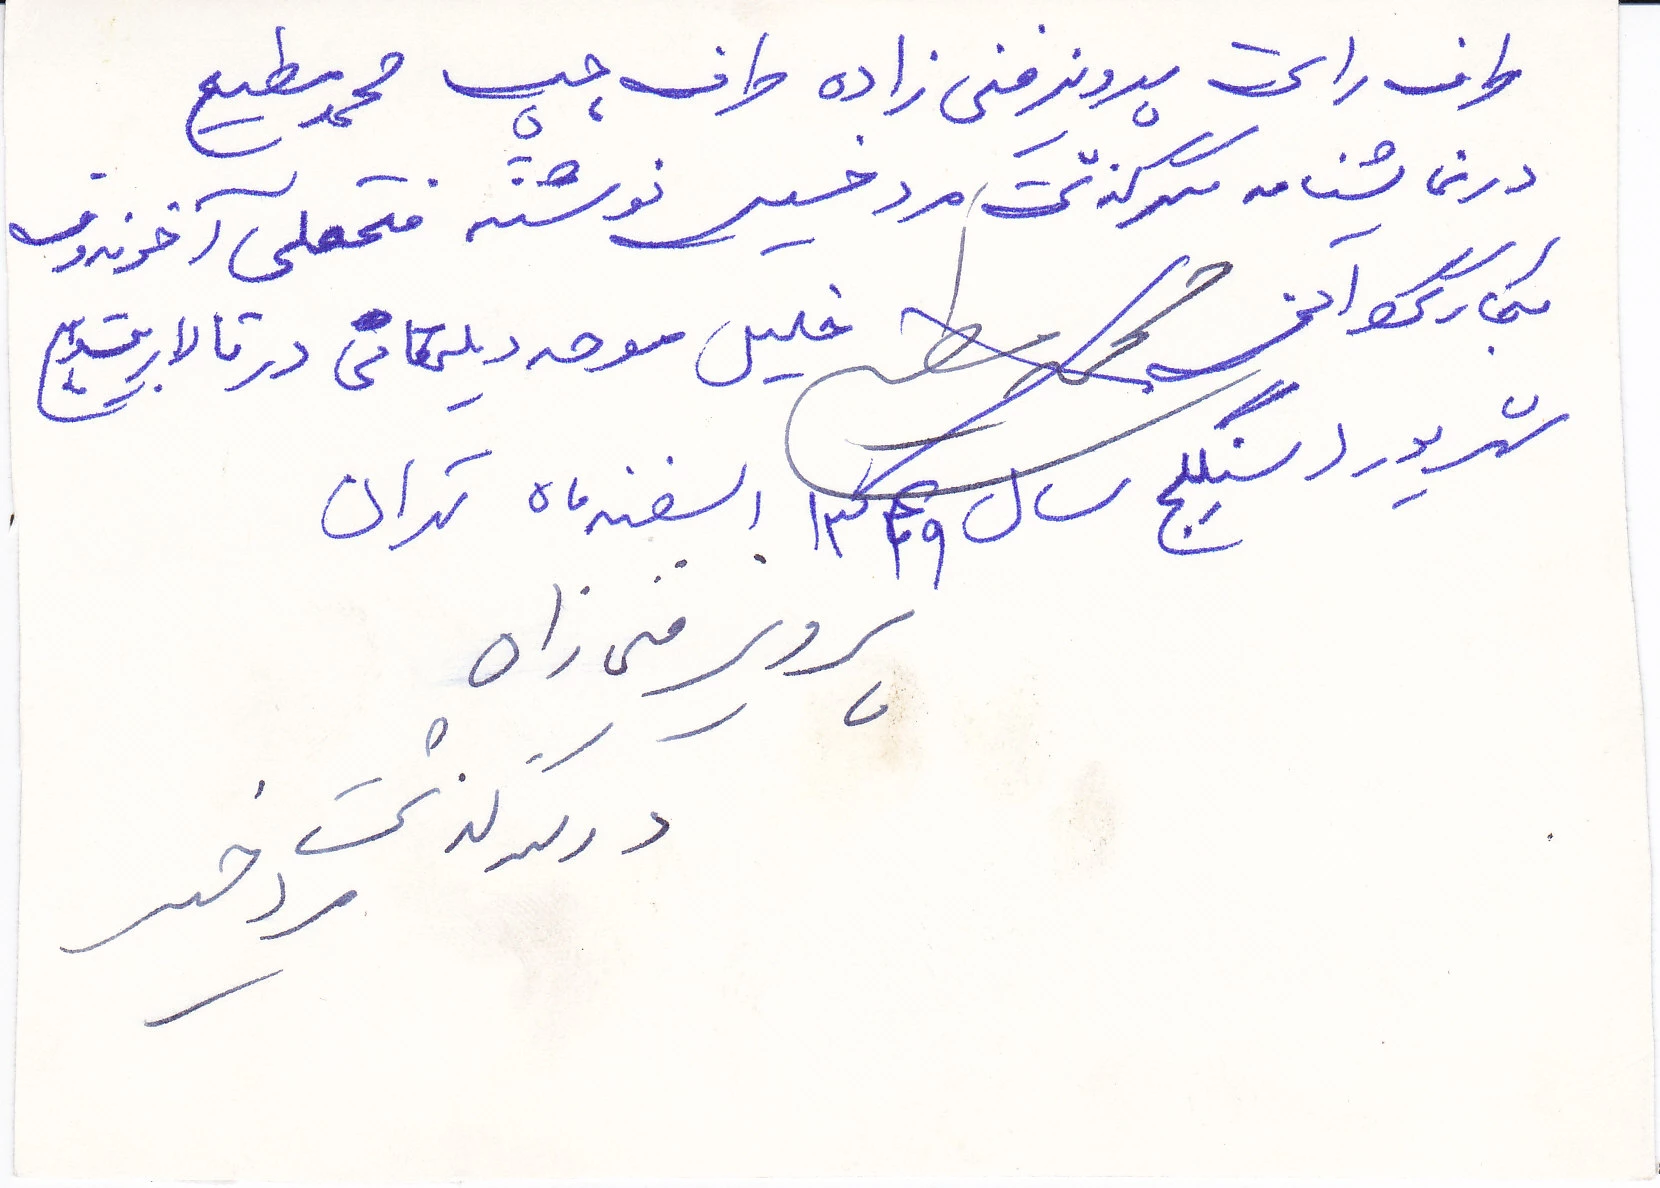 طرف راست پرویز فنی زاده طرف چپ محمد مطیع
در نمایشنامه سرگذشت مرد خسیس نوشته فتحعلی آخوندوف
بکارگردانی خلیل موحد دیلمقانی در تالار بیست و پنج
شهریور (سنگلج سال ۱۳۴۹ اسفند ماه تهران
محمد مطیع
پرویز فنی زاده
در سرگذشت
مرد خسیس